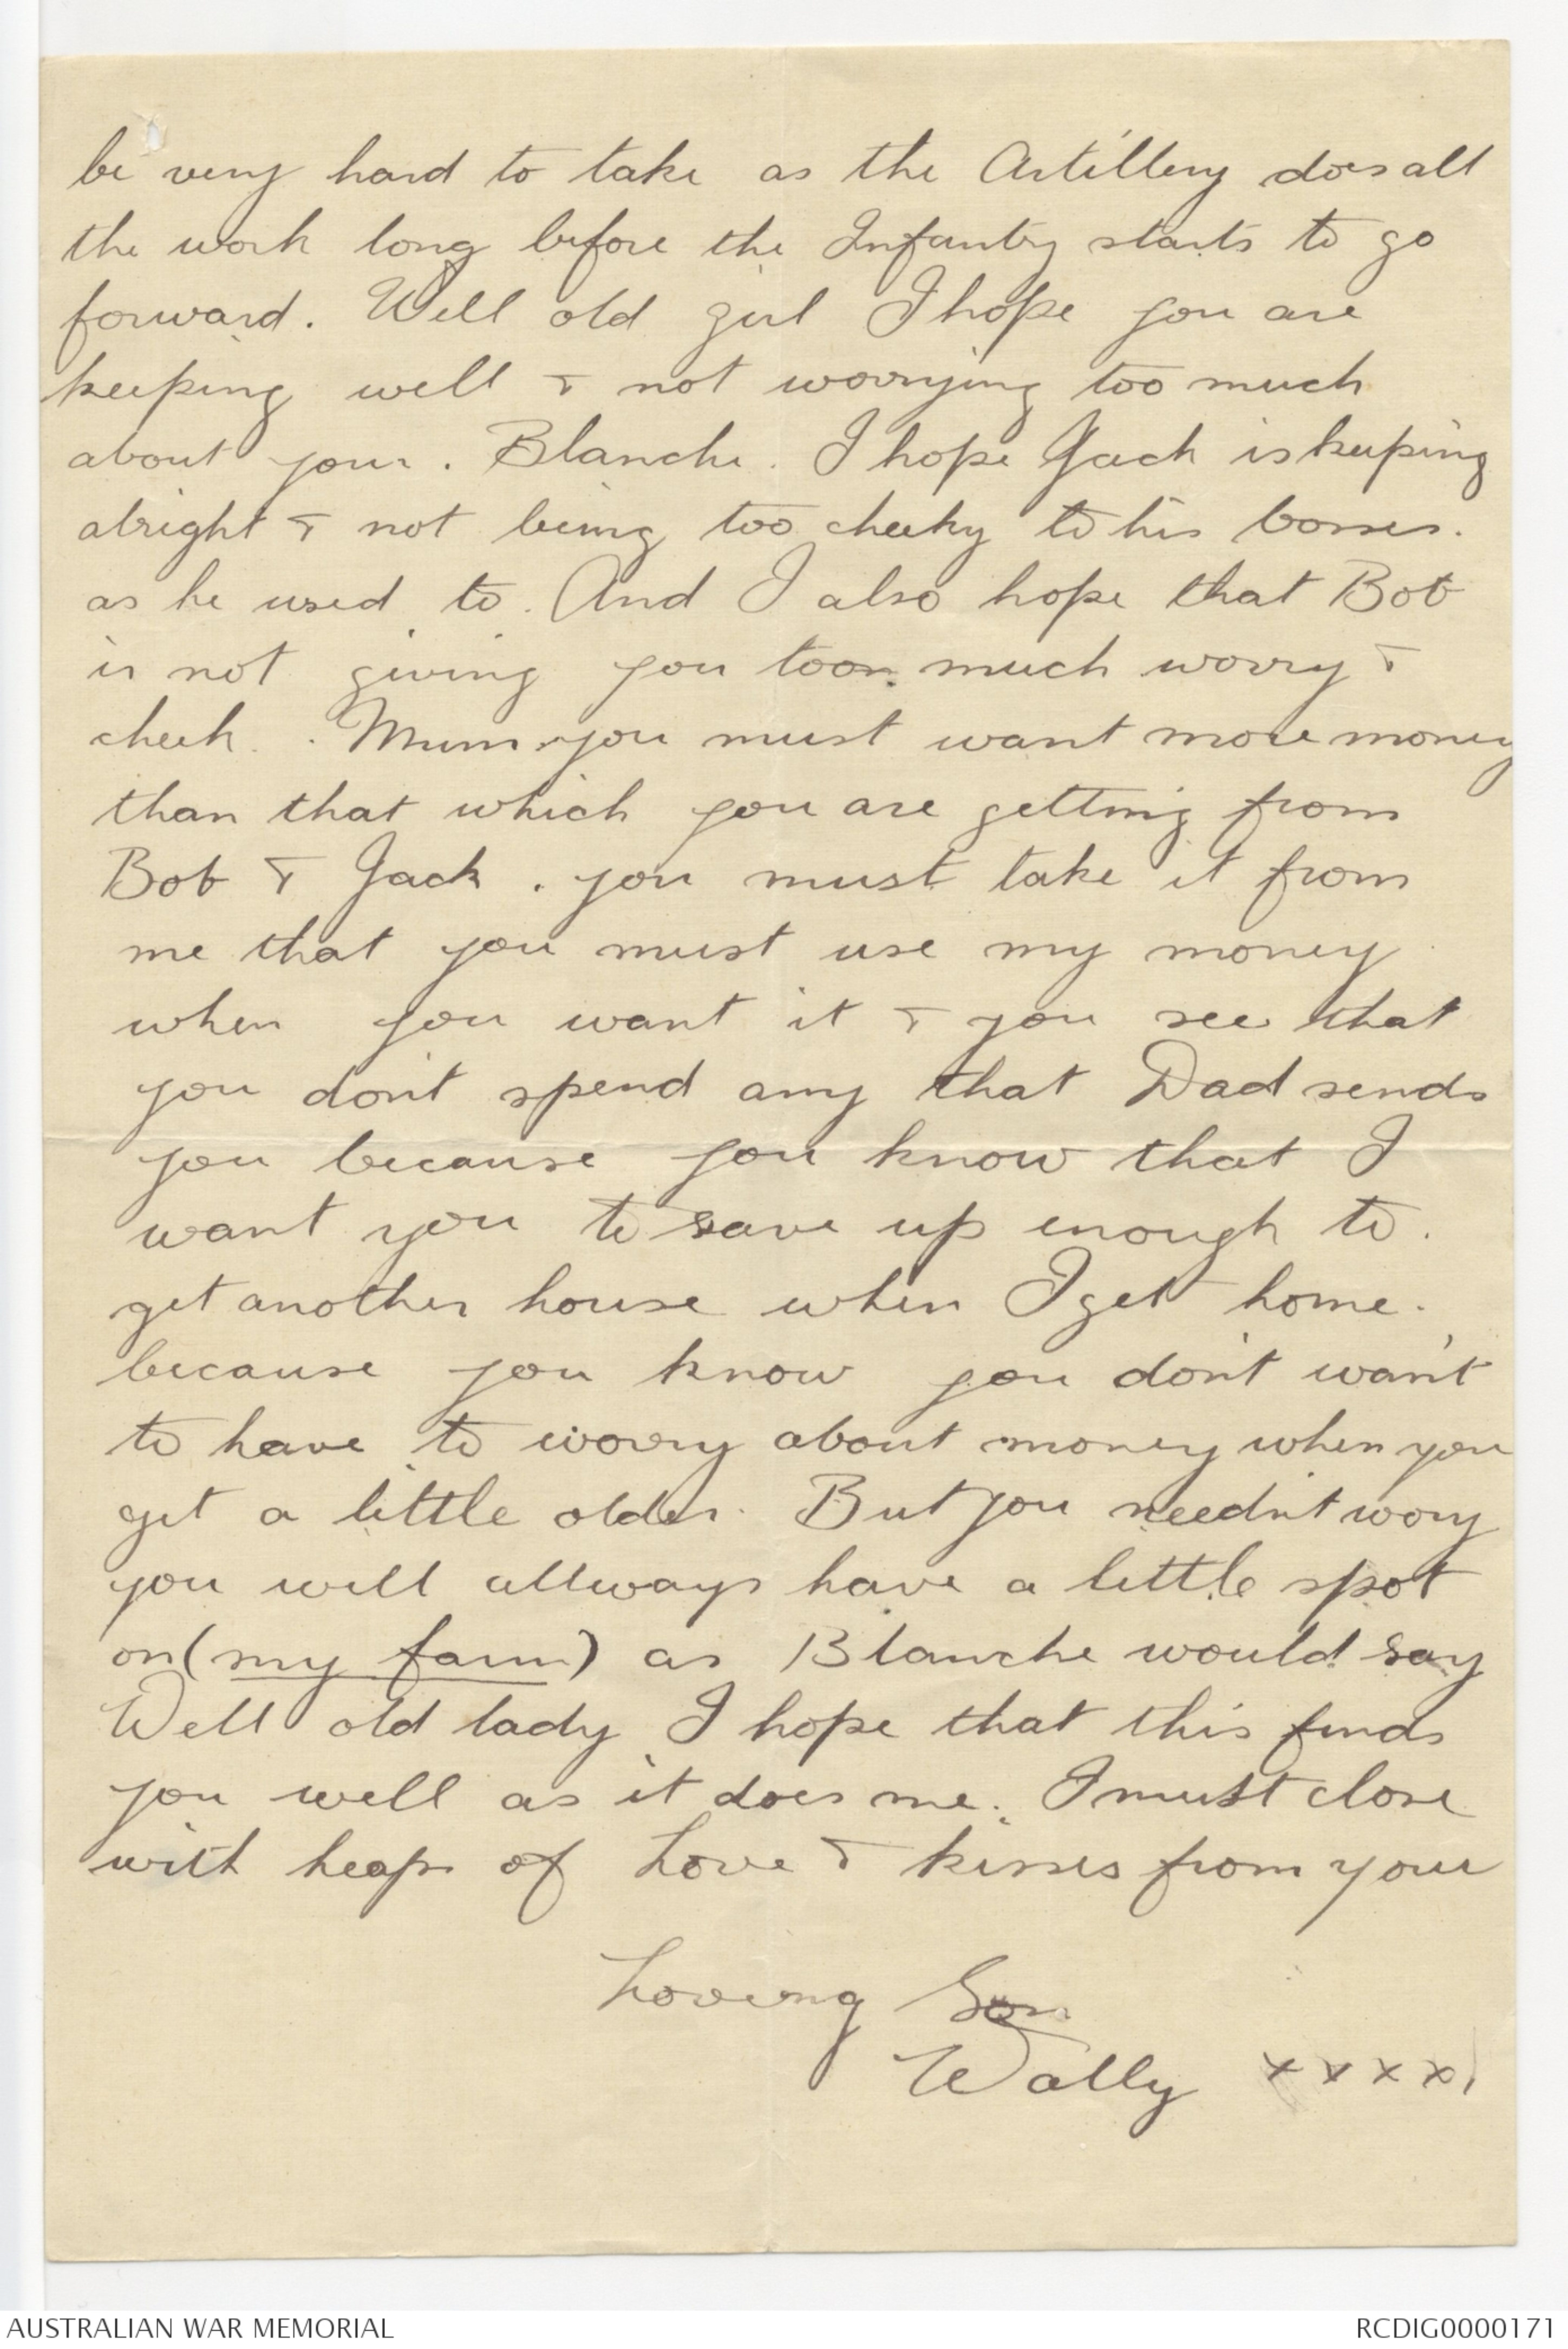 be very hard to take as the Artillery does all
the work long before the Infantry starts to go
forward. Well old girl I hope you are
keeping well & not worrying too much
about your. Blanche. I hope Jack is keeping
alright & not being too cheeky to his bosses.
as he used to. And I also hope that Bob
is not giving you too much worry &
cheek. Mum you must want more money
than that which you are getting from
Bob & Jack. you must take it from
me that you must use my money
when you want it & you see that
you don't spend any that Dad sends
you because you know that I
want you to save up enough to.
get another house when I get home.
because you know you don't wan't
to have to worry about money when you
get a little older. But you needn't worry
you will allways have a little spot
on (my farm) as Blanche would say
Well old lady I hope that this finds
you well as it does me. I must close
with heaps of Love & kisses from your
Loveing Son
Wally xxxx
AUSTRALIAN WAR MEMORIAL
RCDIG0000171